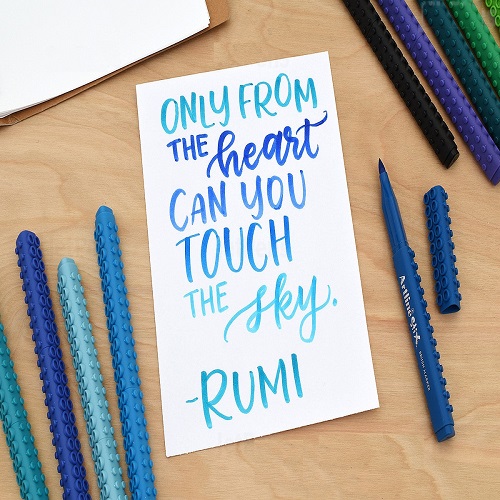 ONLY FROM
THE heart
CAN YOU
TOUCH
THE sky.
-RUMI
Artline Stix
BRUSH MARKER